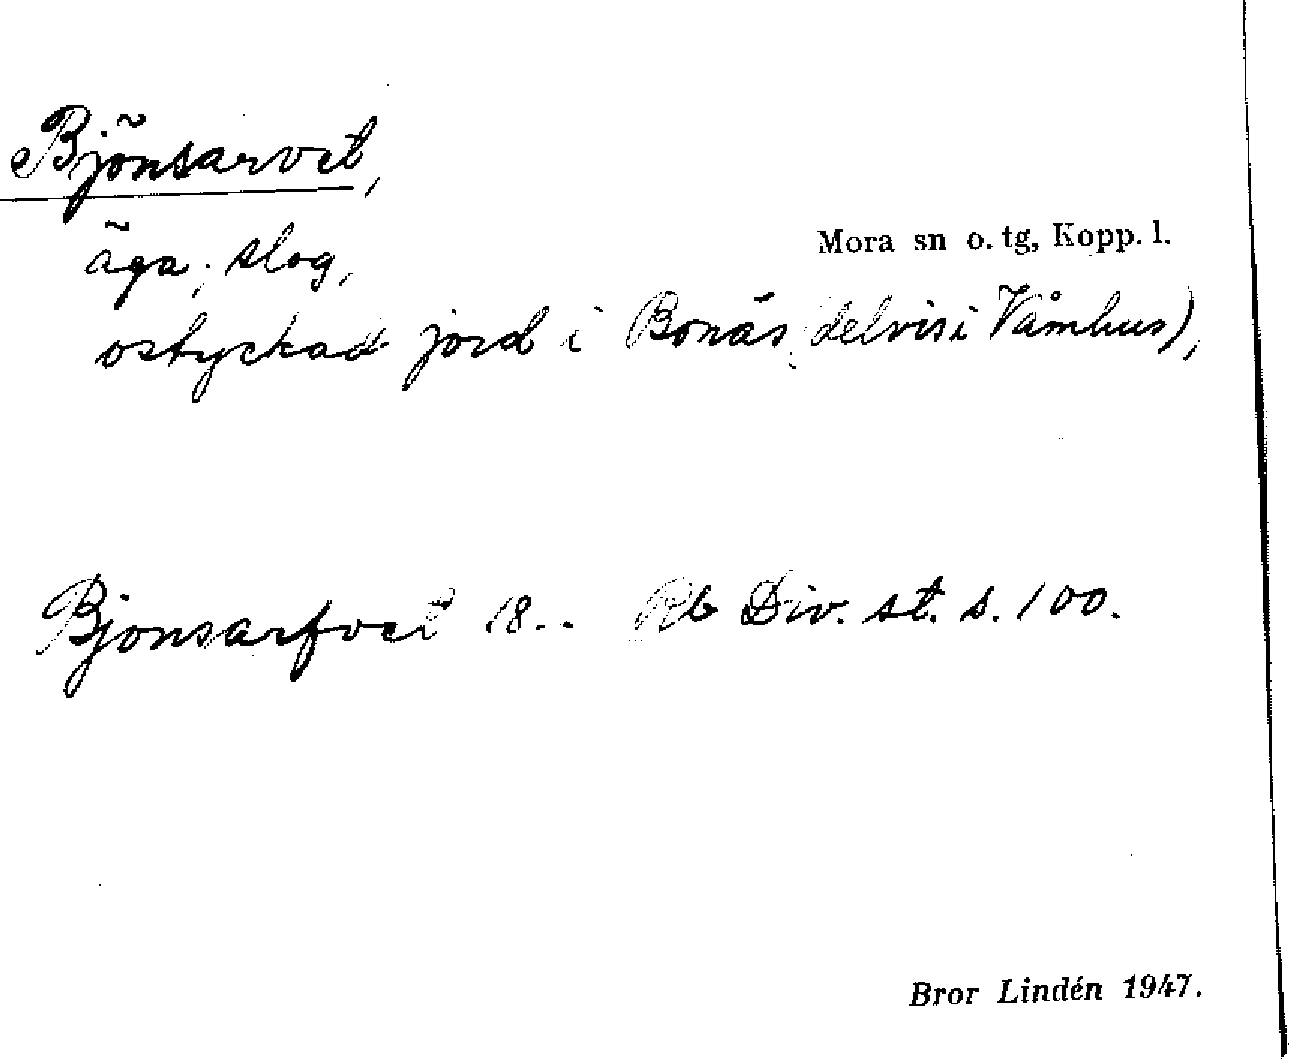 Bjönsarvet,
äga, slog,
Mora sn o. tg, Kopp. l.
ostyckad jord i Bonäs (delvis i Våmhus),
Bjonsarfvet 18.. Rb Div. st. s. 100.
Bror Lindén 1947.